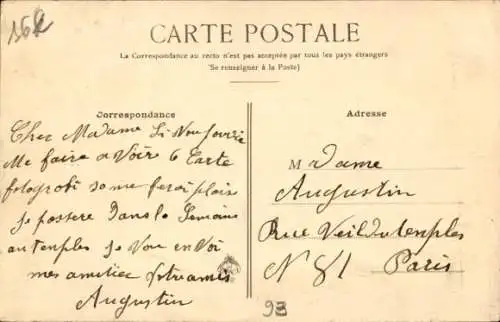 16k
CARTE POSTALE
La Correspondance au recto n'est pas acceptée par tous les pays étrangers
(Se renseigner à la Poste)
Correspondance
Cher Madame Si Vou
Me faire avoire 6 Carte
fotogrofi some feroi plais
Je passere Dans la Semaine
au temples Je Vou en Voi
mes amitiee
Augustin
Adresse
Madame
Augustin
Rue Veil du temples
N 81 Paris
93